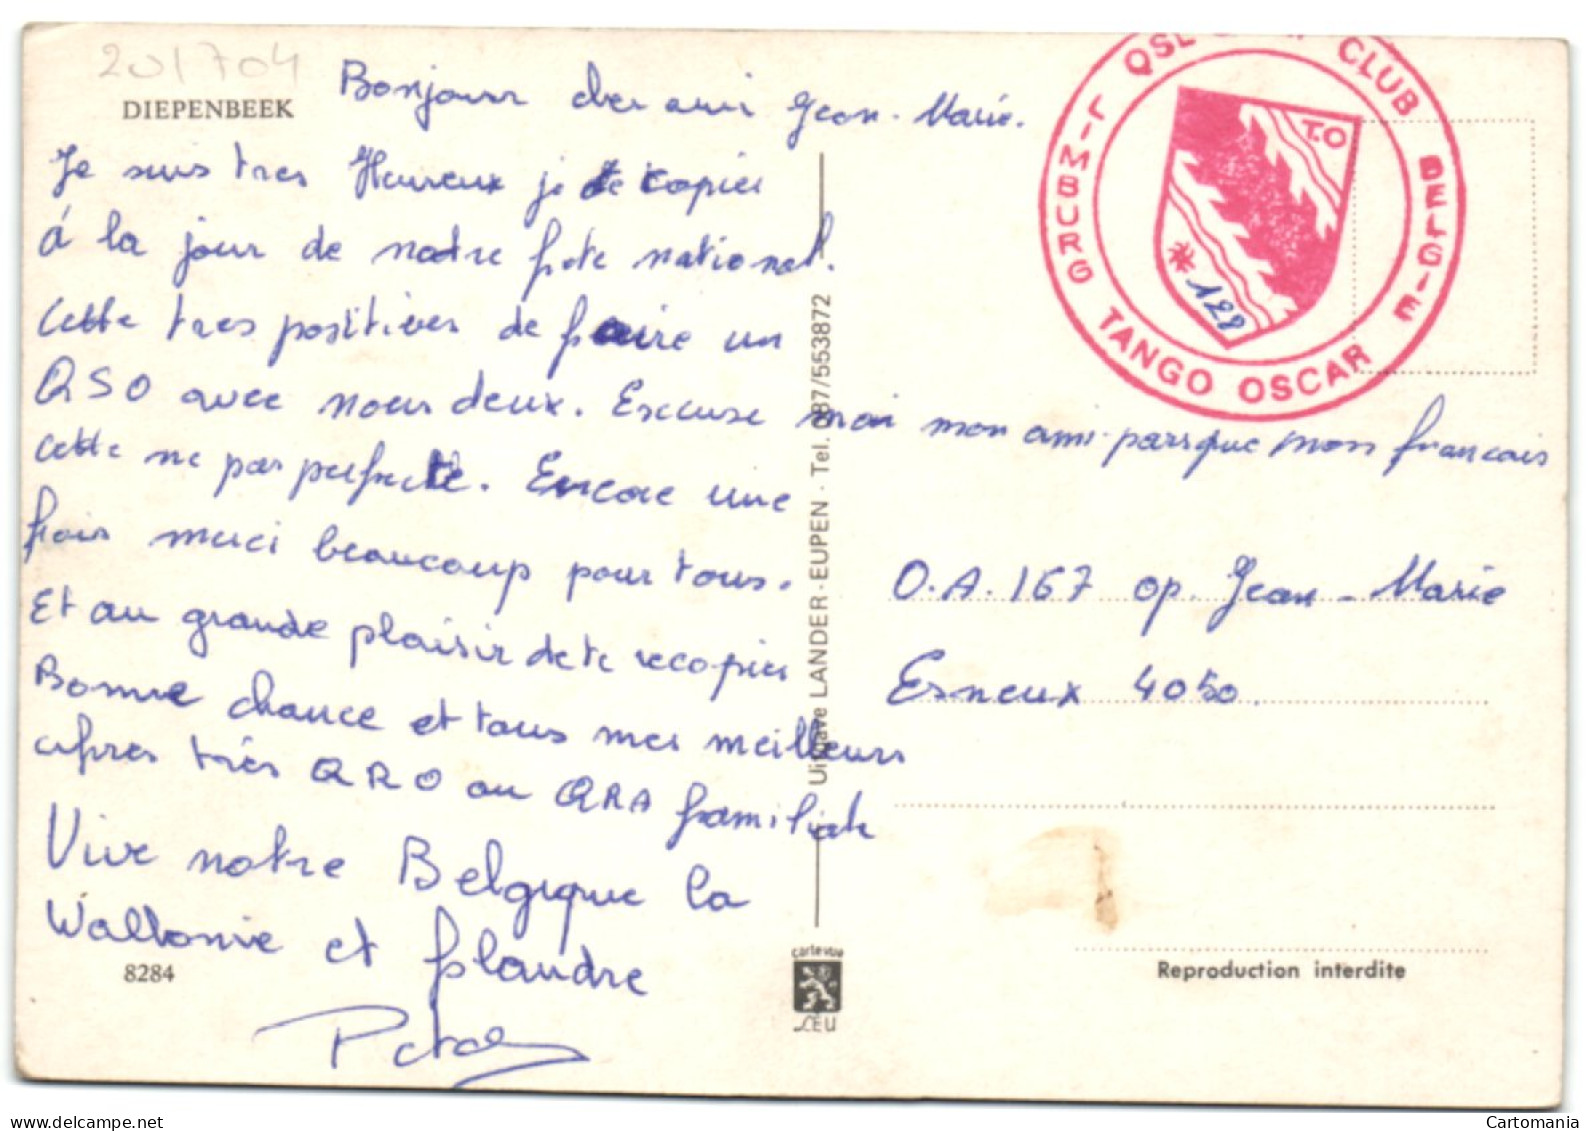 201704
DIEPENBEEK
Bonjour cher ami Jean-Marie.
Je suis tres Heureux je te copier
á la jour de notre fete national.
Cette tres positiver de faire un
QSO avec nous deux. Excuse moi mon ami parsque mon francais
cette ne pas perfecte. Encore une
fois merci beaucoup pour tous.
Et au grande plaisir de te recopier
Bonne chance et tous mes meilleurs
très QRO au QRA familiale
Vive notre Belgique la
Wallonie et flandre
8284
QSL CLUB BELGIE
LIMBURG TANGO OSCAR
T.O
128
Uitgave LANDER - EUPEN - Tel. 087/553872
O.A. 167 op. Jean-Marie
Esneux 4050.
cartevue
Reproduction interdite
Cartomania